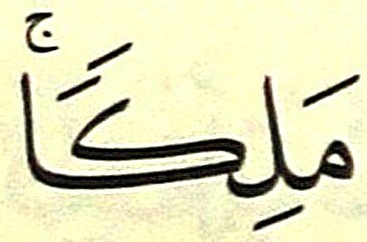 مَلِكًاۚ